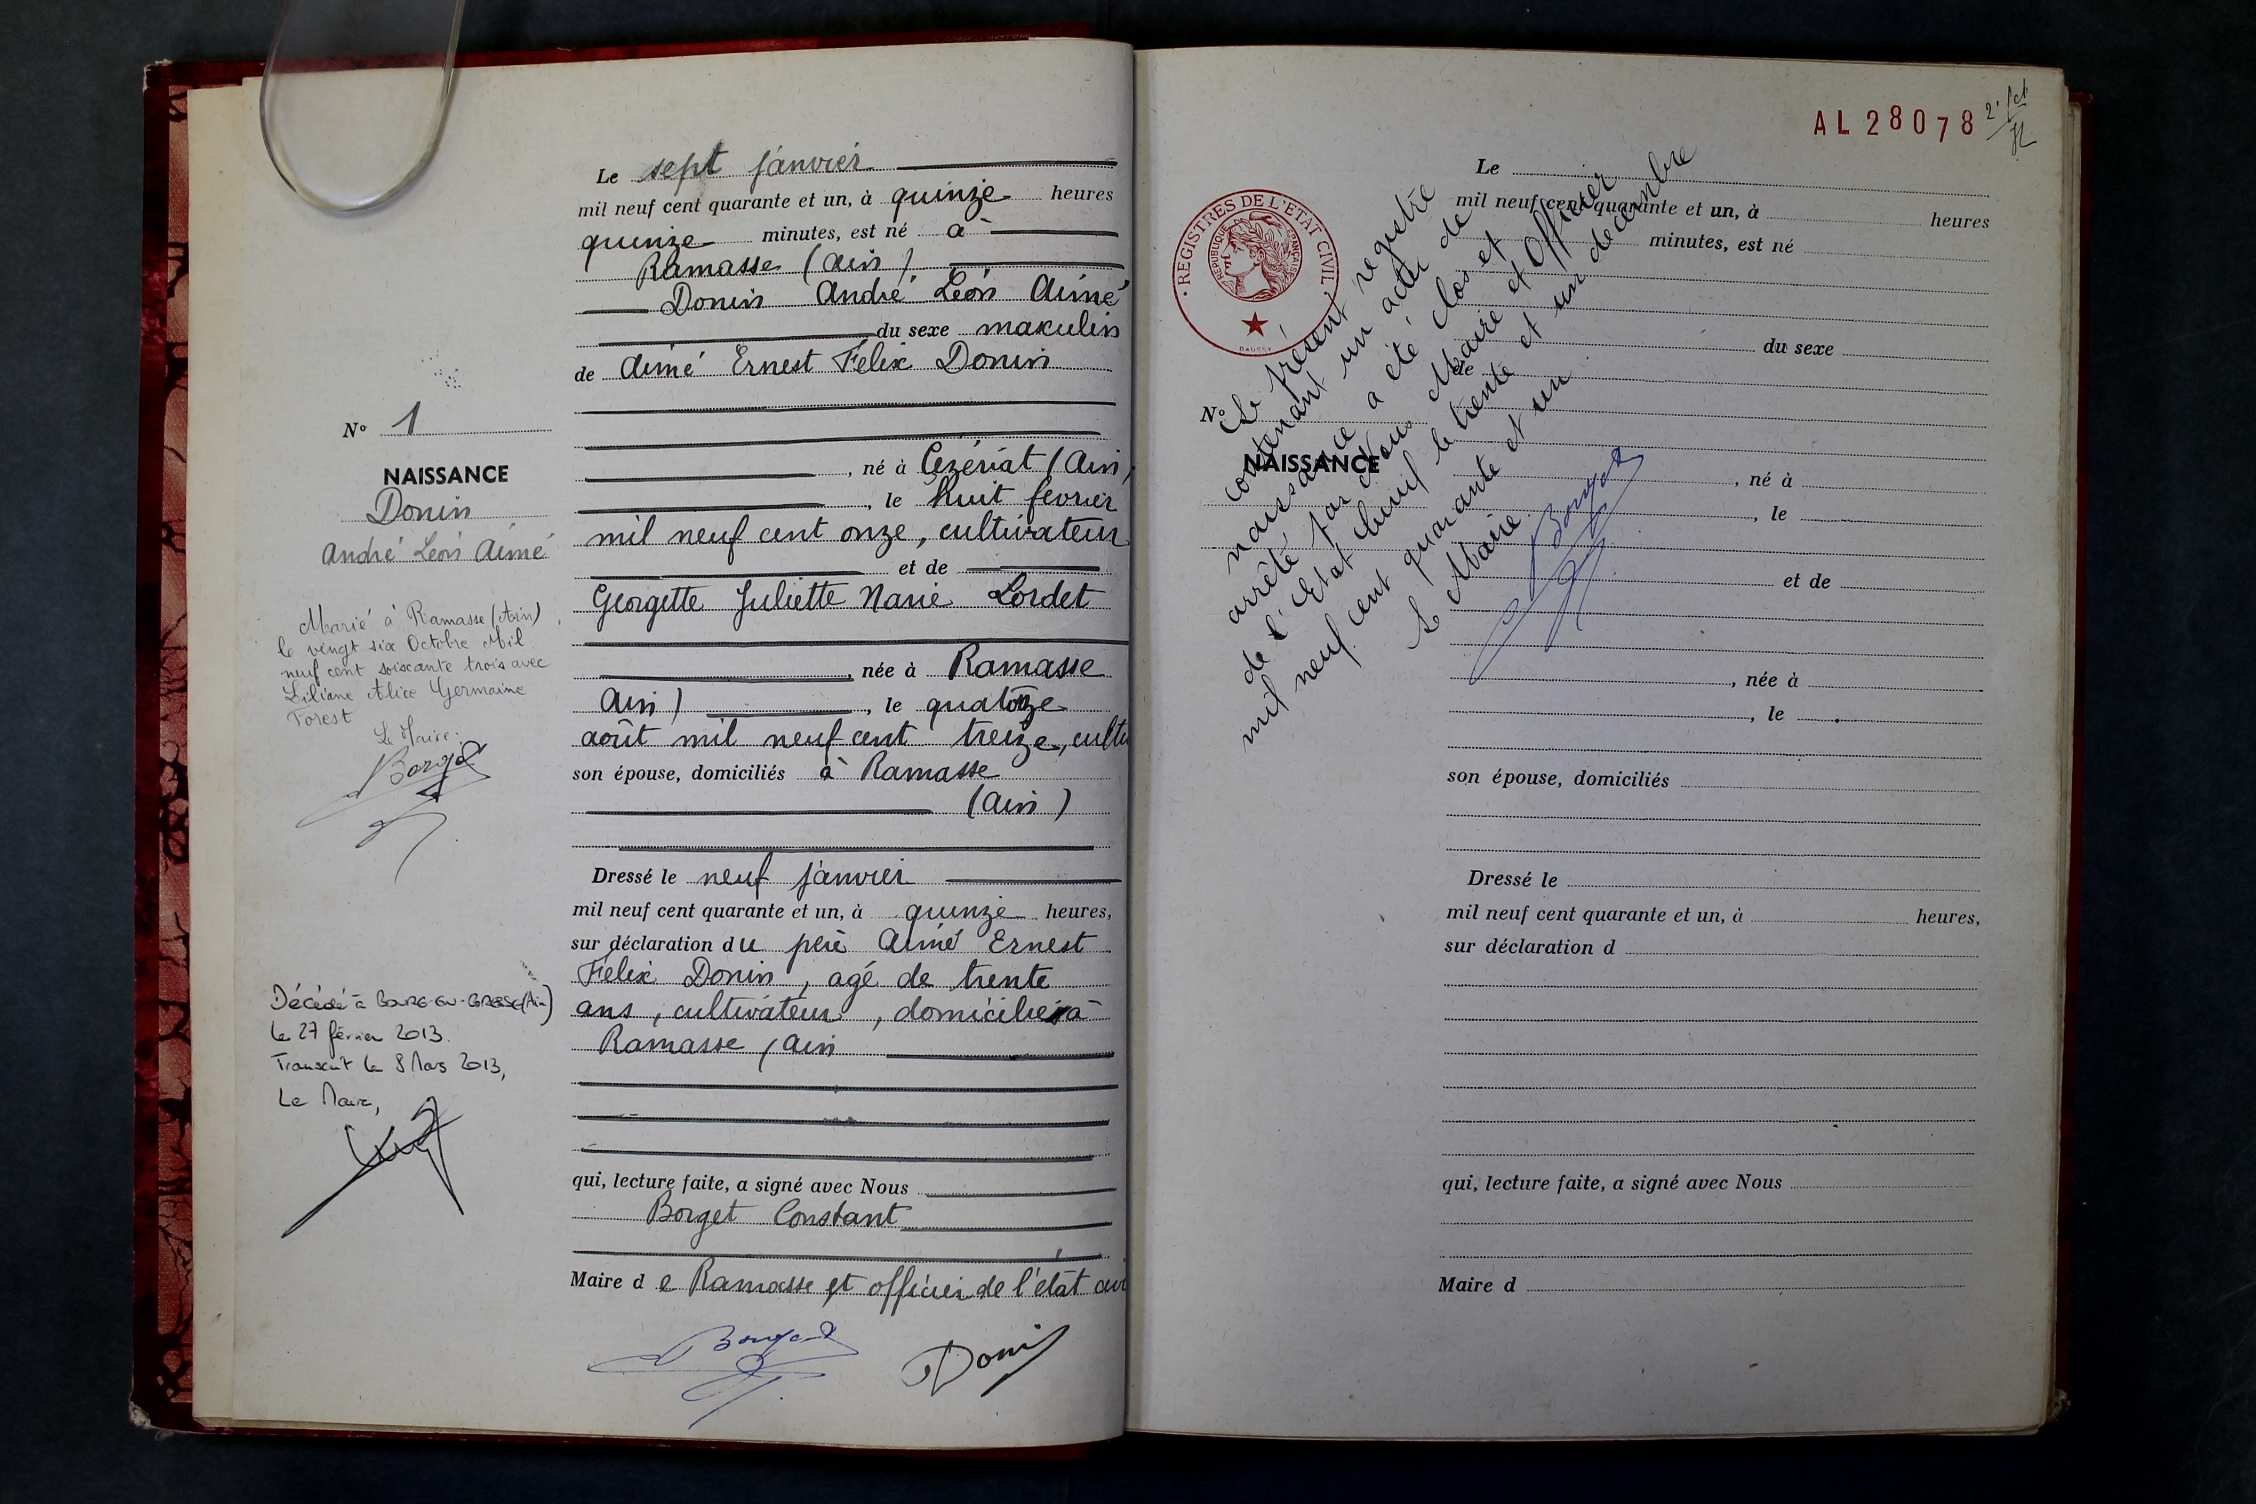 Le sept janvier
mil neuf cent quarante et un, à quinze heures
quinze minutes, est né à
Ramasse (Ain)
Donin André Léon Aimé
du sexe masculin
de Aimé Ernest Félix Donin
, né à Cézériat (Ain)
, le huit février
mil neuf cent onze, cultivateur
et de
Georgette Juliette Marie Lordet
, née à Ramasse
Ain) , le quatorze
août mil neuf cent treize, culti
son épouse, domiciliés à Ramasse
(Ain)
Dressé le neuf janvier
mil neuf cent quarante et un, à quinze heures,
sur déclaration du père Aimé Ernest
Félix Donin, agé de trente
ans, cultivateur, domicilié à
Ramasse (Ain
qui, lecture faite, a signé avec Nous
Borget Constant
Maire de Ramasse et officier de l'état civi
Borget
Donin
N° 1
NAISSANCE
Donin
André Léon Aimé
Marié à Ramasse (Ain)
le vingt six Octobre Mil
neuf cent soixante trois avec
Liliane Alice Germaine
Forest
Le Maire:
Borget
Décédé à BOURG-EN-BRESSE (Ain)
le 27 février 2013.
Transcrit le 8 Mars 2013,
Le Maire,
AL 28078
REGISTRES DE L'ETAT CIVIL
REPUBLIQUE FRANÇAISE
Le
mil neuf cent quarante et un, à heures
minutes, est né
du sexe
de
N°
NAISSANCE
, né à
, le
et de
, née à
, le
son épouse, domiciliés
Dressé le
mil neuf cent quarante et un, à heures,
sur déclaration d
qui, lecture faite, a signé avec Nous
Maire d
Le présent registre
contenant un acte de
naissance a été clos et
arrêté par Nous Maire et Officier
de l'Etat Civil le trente et un décembre
mil neuf cent quarante et un
Le Maire
Borget